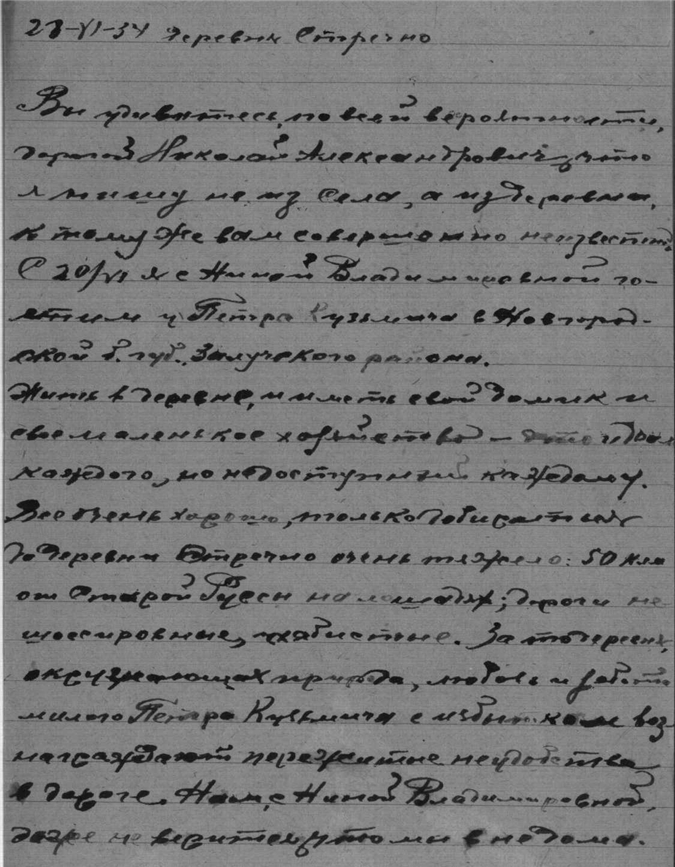 23-VI-34 Деревня Стречно
Вы удивитесь, по всей вероятности,
дорогой Николай Александрович, что
я пишу не из села, а из деревни,
к тому же вам совершенно неизвестной
С 20/VI я с Ниной Владимировной го-
стим у Петра Кузьмича в Новгород-
ской б. губ., Залучского района.
Жить в деревне, иметь свой домик и
свое маленькое хозяйство – это идеал
каждого, но недоступный каждому.
Все очень хорошо, только добираться
до деревни Стречно очень тяжело: 50 клм
от Старой Руссы на лошадях; дороги не
шоссированные, ухабистые. За то
окружающая природа, любовь и заботы
милого Петра Кузьмича с избытком воз-
награждают пережитые неудобства
в дороге. Нам, с Ниной Владимировной,
даже не верится, что мы не дома.